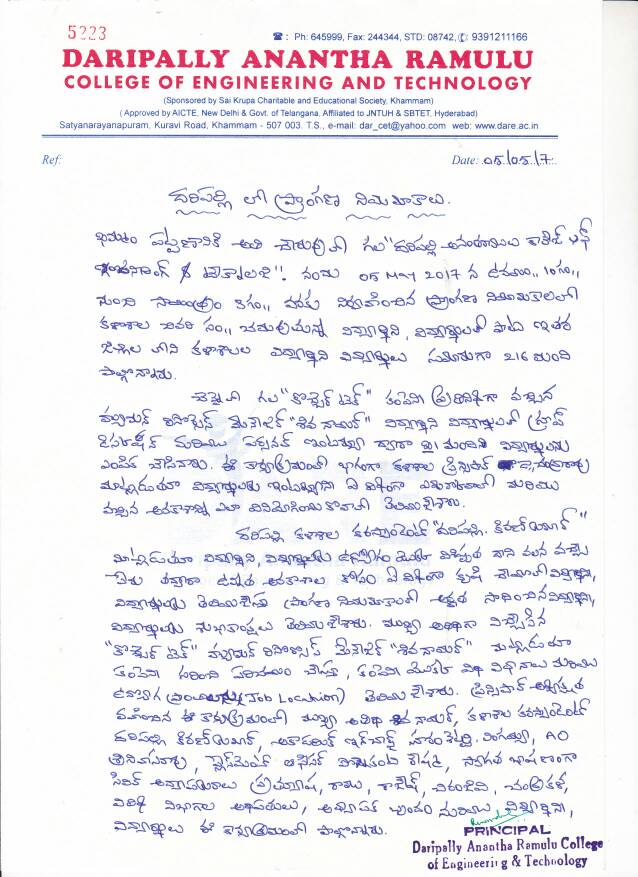 5223
☎ : Ph: 645999, Fax: 244344, STD: 08742, ✆: 9391211166
DARIPALLY ANANTHA RAMULU
COLLEGE OF ENGINEERING AND TECHNOLOGY
(Sponsored by Sai Krupa Charitable and Educational Society, Khammam)
(Approved by AICTE, New Delhi & Govt. of Telangana, Affiliated to JNTUH & SBTET, Hyderabad)
Satyanarayanapuram, Kuravi Road, Khammam - 507 003. T.S., e-mail: dar_cet@yahoo.com web: www.dare.ac.in
Ref: Date: 05/05/17
దరిపల్లి లో ప్రాంగణ నియామకాలు.
ఖమ్మం పట్టణానికి అతి చేరువలో గల "దరిపల్లి అనంతరాములు కాలేజ్ ఆఫ్
ఇంజనీరింగ్ & టెక్నాలజి". నందు 05 May 2017 న ఉదయం 10గం,,
నుంచి సాయంత్రం 5గం,, వరకు నిర్వహించిన ప్రాంగణ నియామకాలలో
కళాశాల చివరి సం,, చదువుతున్న విద్యార్థిని, విద్యార్థులతో పాటు ఇతర
జిల్లాల లోని కళాశాలల విద్యార్థిని విద్యార్థులు సుమారుగా 216 మంది
పాల్గొన్నారు.
చెన్నై లో గల "కాన్సెప్ట్ టెక్" కంపెనీ ప్రతినిధిగా వచ్చిన
హ్యుమన్ రిసోర్సెస్ మేనేజర్ "శివ నాయర్" విద్యార్థిని విద్యార్థులతో గ్రూప్
డిస్కషన్ మరియు పర్సనల్ ఇంటర్వ్యూ ద్వారా మందిని విద్యార్థులను
ఎంపిక చేసినారు. ఈ కార్యక్రమంలో భాగంగా కళాశాల ప్రిన్సిపాల్
మాట్లాడుతూ విద్యార్థులకు ఇంటర్వ్యూని ఏ విధంగా ఎదుర్కోవాలో మరియు
వచ్చిన అవకాశాన్ని ఎలా వినియోగించుకోవాలో తెలియచేశారు.
దరిపల్లి కళాశాల కరస్పాండెంట్ "దరిపల్లి. కిరణ్ కుమార్"
మాట్లాడుతూ విద్యార్థిని, విద్యార్థులకు ఉద్యోగం యొక్క విశిష్టత దాని వలన వచ్చే
పేరు తద్వారా ఉన్నత అవకాశాల కోసం ఏ విధంగా కృషి చేయాలో విద్యార్థిని,
విద్యార్థులకు తెలియచేస్తూ ప్రాంగణ నియామకాలలో అర్హత సాధించిన విద్యార్థిని,
విద్యార్థులకు శుభాకాంక్షలు తెలియచేశారు. ముఖ్య అతిథిగా విచ్చేసిన
"కాన్సెప్ట్ టెక్" హ్యుమన్ రిసోర్సెస్ మేనేజర్ "శివ నాయర్" మాట్లాడుతూ
కంపెనీ గురించి పరిచయం చేస్తూ, కంపెనీ యొక్క విధి విధానాలు మరియు
ఉద్యోగ (Job Location) తెలియచేశారు. ప్రిన్సిపాల్ అధ్యక్షత
వహించిన ఈ కార్యక్రమంలో ముఖ్య అతిథి శివ నాయర్, కళాశాల కరస్పాండెంట్
దరిపల్లి కిరణ్ కుమార్, అకాడమిక్ ఇన్‌చార్జ్ AO
శ్రీనివాసరావు, ప్లేస్‌మెంట్ ఆఫీసర్ స్వాగత భాషణంగా
ప్రత్యూష, రాజు, రాజేష్, చిరంజీవి, చంద్రకళ,
వివిధ విభాగాల అధిపతులు, అధ్యాపక బృందం మరియు విద్యార్థిని,
విద్యార్థులు ఈ కార్యక్రమంలో పాల్గొన్నారు.
PRINCIPAL
Daripally Anantha Ramulu College
of Engineering & Technology